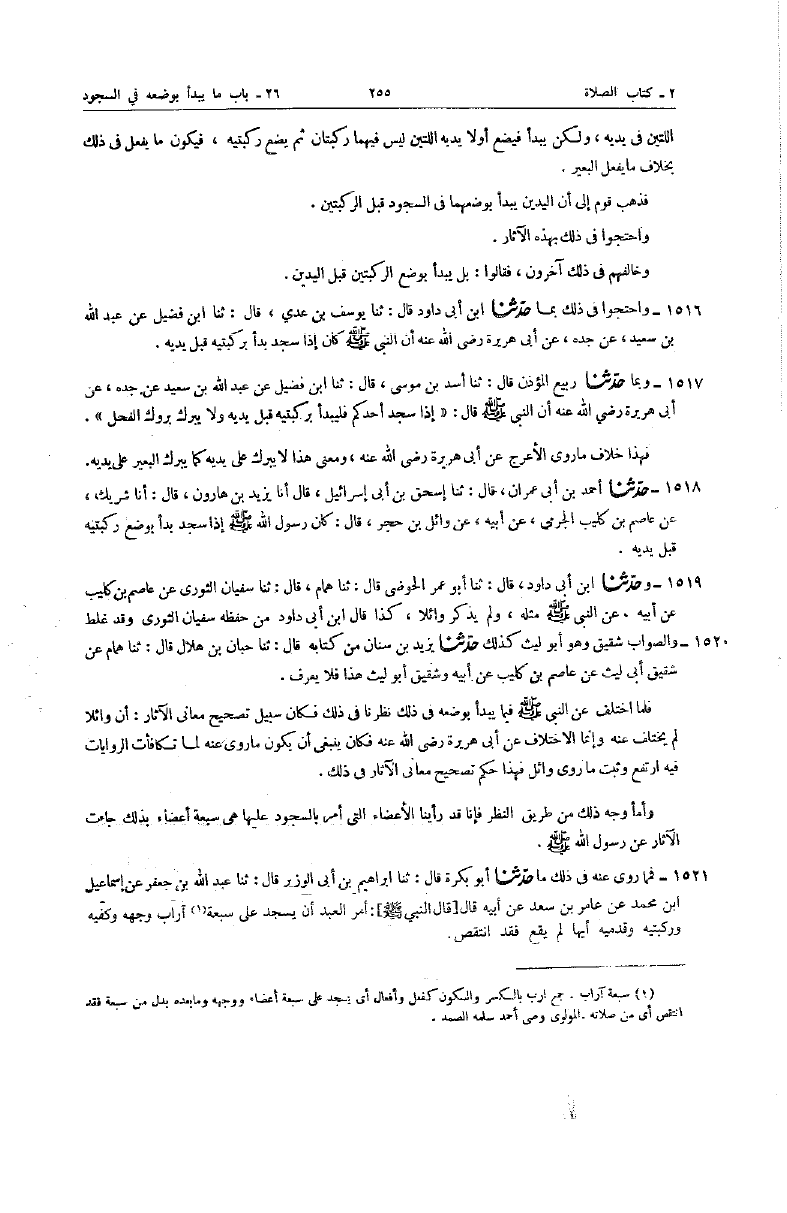 ٢ ـ كتاب الصلاة ٢٥٥ ٢٦ ـ باب ما يبدأ بوضعه في السجود
اللتين فى يديه ، ولكن يبدأ فيضع أولا يديه اللتين ليس فيهما ركبتان ثم يضع ركبتيه ، فيكون ما يفعل فى ذلك
بخلاف مايفعل البعير .
فذهب قوم إلى أن اليدين يبدأ بوضعهما فى السجود قبل الركبتين .
واحتجوا فى ذلك بهذه الآثار .
وخالفهم فى ذلك آخرون ، فقالوا : بل يبدأ بوضع الركبتين قبل اليدين .
١٥١٦ ـ واحتجوا فى ذلك بما حدثنا ابن أبى داود قال : ثنا يوسف بن عدي ، قال : ثنا ابن فضيل عن عبد الله
بن سعيد ، عن جده ، عن أبى هريرة رضى الله عنه أن النبى ﷺ كان إذا سجد بدأ بركبتيه قبل يديه .
١٥١٧ ـ وبما حدثنا ربيع المؤذن قال : ثنا أسد بن موسى ، قال : ثنا ابن فضيل عن عبد الله بن سعيد عن جده ، عن
أبى هريرة رضي الله عنه أن النبى ﷺ قال : « إذا سجد أحدكم فليبدأ بركبتيه قبل يديه ولا يبرك بروك الفحل » .
فهذا خلاف ماروى الأعرج عن أبى هريرة رضى الله عنه ، ومعنى هذا لايبرك على يديه كما يبرك البعير على يديه.
١٥١٨ ـ حدثنا أحمد بن أبى عمران ، قال : ثنا إسحق بن أبى إسرائيل ، قال أنا يزيد بن هارون ، قال : أنا شريك ،
عن عاصم بن كليب الجرمى ، عن أبيه ، عن وائل بن حجر ، قال : كان رسول الله ﷺ إذا سجد بدأ بوضع ركبتيه
قبل يديه .
١٥١٩ ـ وحدثنا ابن أبى داود ، قال : ثنا أبو عمر الحوضى قال : ثنا همام ، قال : ثنا سفيان الثورى عن عاصم بن كليب
عن أبيه . عن النبي ﷺ مثله ، ولم يذكر وائلا ، كذا قال ابن أبى داود من حفظه سفيان الثورى وقد غلط
١٥٢٠ ـ والصواب شقيق وهو أبو ليث كذلك حدثنا يزيد بن سنان من كتابه قال : ثنا حبان بن هلال قال : ثنا همام عن
شقيق أبى ليث عن عاصم بن كليب عن أبيه وشقيق أبو ليث هذا فلا يعرف .
فلما اختلف عن النبى ﷺ فيما يبدأ بوضعه فى ذلك نظرنا فى ذلك فكان سبيل تصحيح معانى الآثار : أن وائلا
لم يختلف عنه وإنما الاختلاف عن أبى هريرة رضى الله عنه فكان ينبغى أن يكون ماروى عنه لما تكافأت الروايات
فيه ارتفع وثبت ما روى وائل فهذا حكم تصحيح معانى الآثار فى ذلك .
وأما وجه ذلك من طريق النظر فإنا قد رأينا الأعضاء التى أمر بالسجود عليها هى سبعة أعضاء بذلك جاءت
الآثار عن رسول الله ﷺ .
١٥٢١ ـ فما روى عنه فى ذلك ما حدثنا أبو بكرة قال : ثنا ابراهيم بن أبى الوزير قال : ثنا عبد الله بن جعفر عن إسماعيل
ابن محمد عن عامر بن سعد عن أبيه قال [قال النبي ﷺ] : أمر العبد أن يسجد على سبعة(١) آراب وجهه وكفيه
وركبتيه وقدميه أيها لم يقع فقد انتقص .
(١) سبعة آراب . جمع ارب بالكسر والسكون كفعل وأفعال أى يسجد على سبعة أعضاء ووجهه ومابعده بدل من سبعة فقد
انتقص أى من صلاته . المولوى وصى أحمد سلمه الصمد .